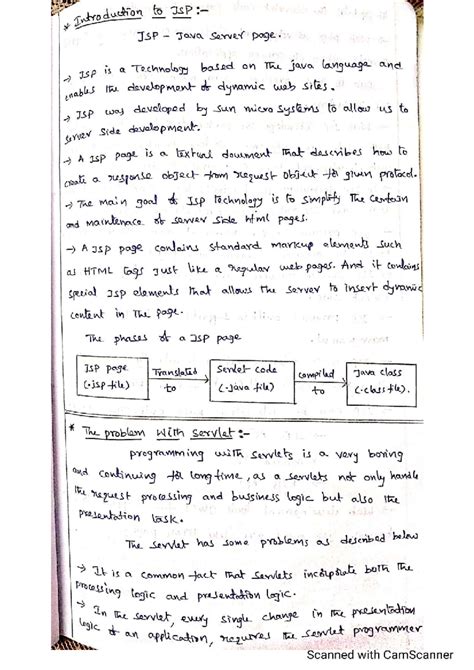 * Introduction to JSP :-
JSP - Java Server page.
→ JSP is a Technology based on The java language and
enables the development of dynamic web sites.
→ JSP was developed by sun micro systems to allow us to
server side development.
→ A JSP page is a textual doument that describes how to
create a response object from request object for given protocol.
→ The main goal of JSP technology is to simplify the
and maintenace of server side html pages.
→ A JSP page contains standard markup elements such
as HTML tags just like a regular web pages. And it contains
special JSP elements that allows the server to insert dynamic
content in the page.
The phases of a JSP page
JSP page (.jsp file) Translated to Servlet code (.java file) compiled to Java class (.class file).
* The problem with servlet :-
programming with servlets is a very boring
and continuing for long time, as a servlets not only handle
the request processing and bussiness logic but also the
presentation task.
The servlet has some problems as described below
→ It is a common fact that servlets incorporate both the
processing logic and presentation logic.
→ In the servlet, every single change in the presentation
logic of an application, requires the servlet programmer
Scanned with CamScanner